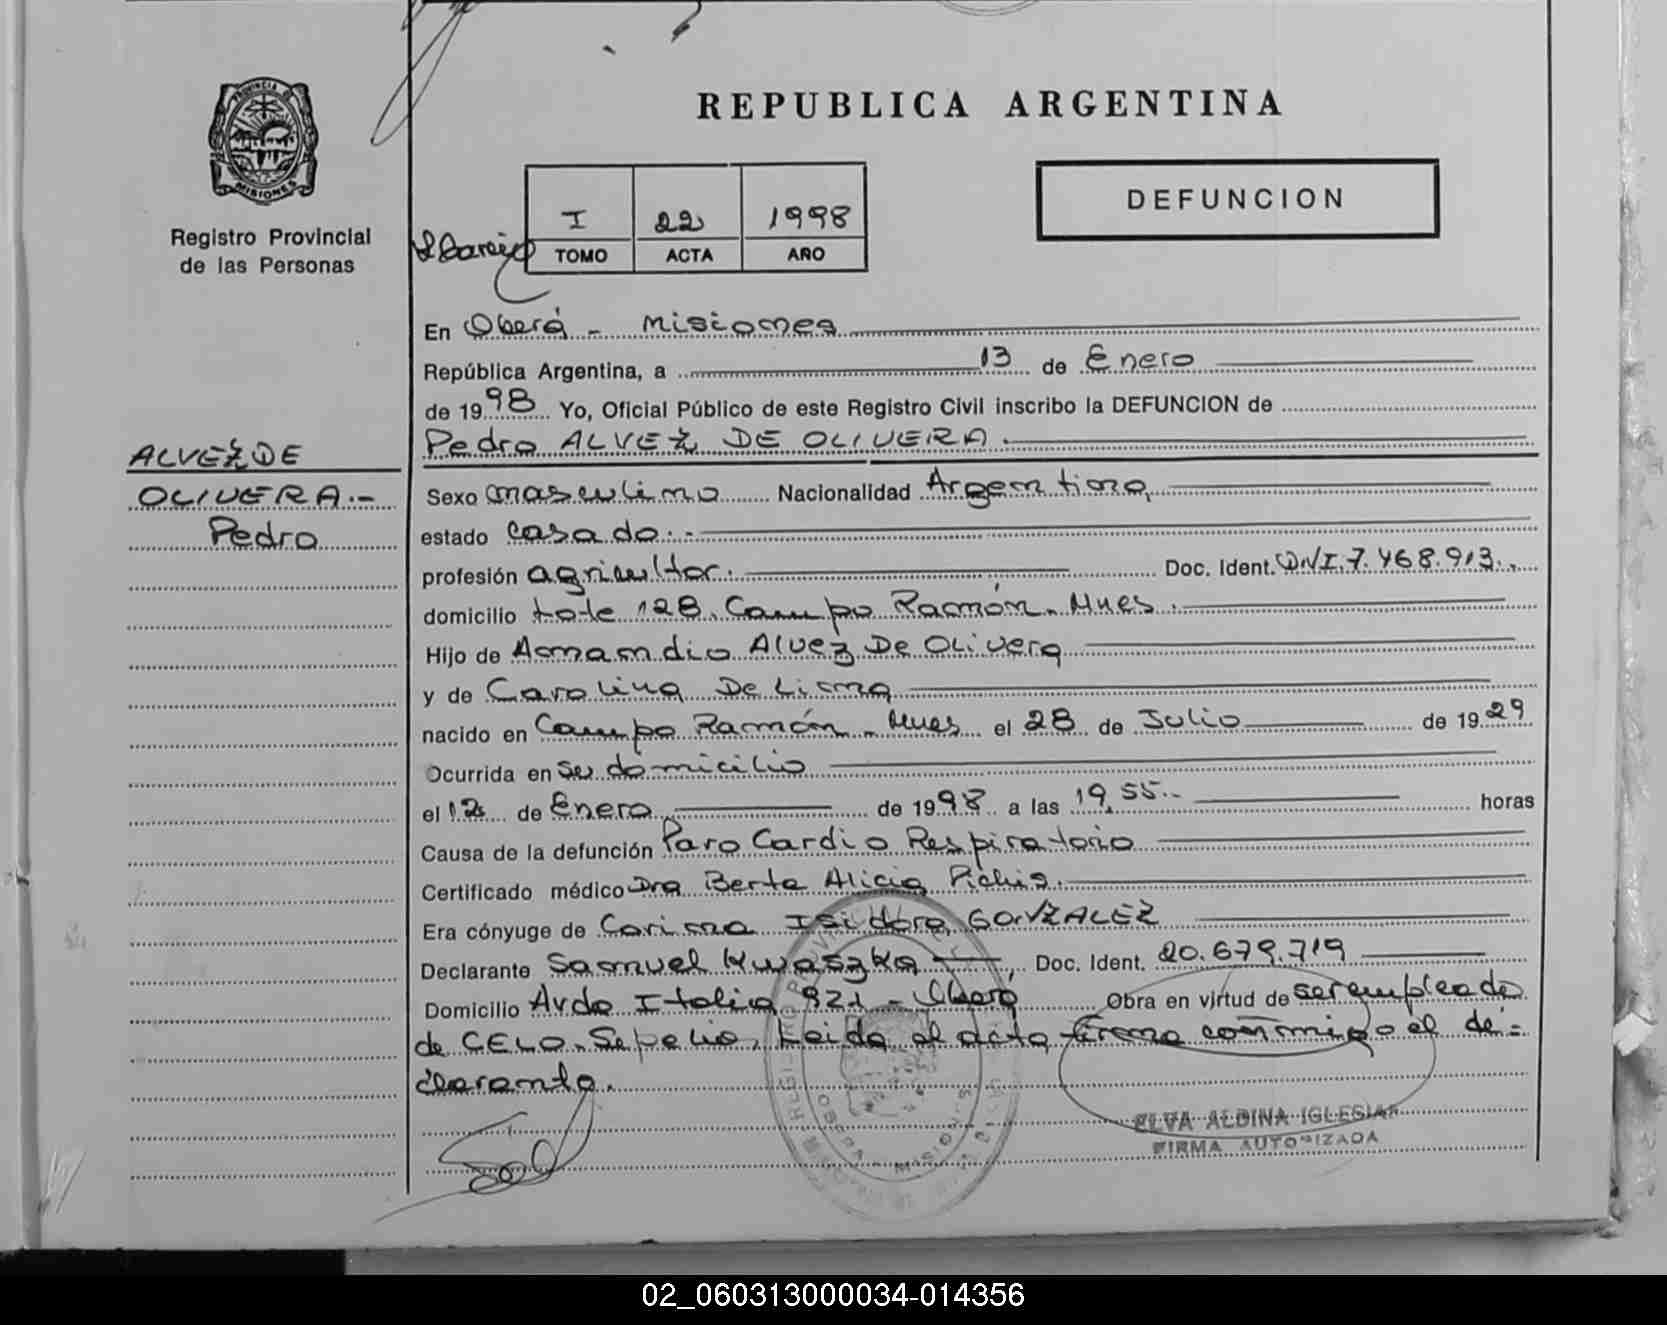 REPUBLICA ARGENTINA
PROVINCIA DE
MISIONES
Registro Provincial
de las Personas
I 22 1998
TOMO ACTA AÑO
DEFUNCION
En Oberá - Misiones
República Argentina, a 13 de Enero
de 1998 Yo, Oficial Público de este Registro Civil inscribo la DEFUNCION de
Pedro ALVEZ DE OLIVERA.
ALVEZ DE
OLIVERA.-
Pedro
Sexo masculino Nacionalidad Argentina
estado casado.-
profesión agricultor. Doc. Ident. D.N.I. 7.468.913.
domicilio Lote 128. Campo Ramón - Mnes.
Hijo de Amandio Alvez De Olivera
y de Carolina De Lima
nacido en Campo Ramón - Mnes el 28 de Julio de 1929
Ocurrida en su domicilio
el 12 de Enero de 1998 a las 19,55.- horas
Causa de la defunción Paro Cardio Respiratorio
Certificado médico Dra Berta Alicia
Era cónyuge de Corina Isidora GONZALEZ
Declarante Samuel Kwaszka, Doc. Ident. 20.679.719
Domicilio Avda Italia 921 - Oberá Obra en virtud de ser empleado
de CELO. Sepelio, Leida el acta firma conmigo el de-
clarante.
ELVA ALBINA IGLESIAS
FIRMA AUTORIZADA
02_060313000034-014356